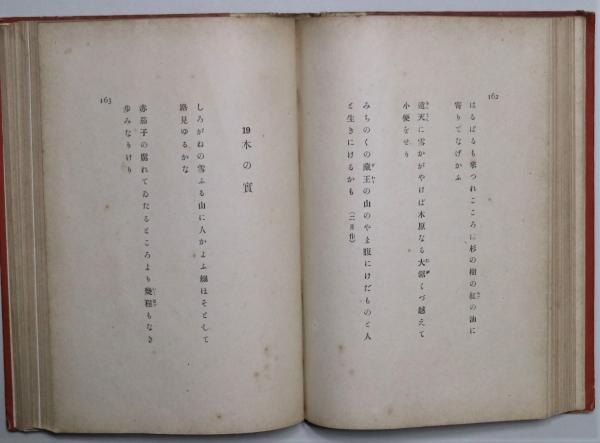 162
はるばるも來つれこころは杉の樹の紅の油に
寄りてなげかふ
遠天に雪かがやけば木原なる大鋸くづ越えて
小便をせり
みちのくの藏王の山のやま腹にけだものと人
と生きにけるかも (二月作)
19 木の實
しろがねの雪ふる山に人かよふ細ほそとして
路見ゆるかな
赤茄子の腐れてゐたるところより幾程もなき
歩みなりけり
163